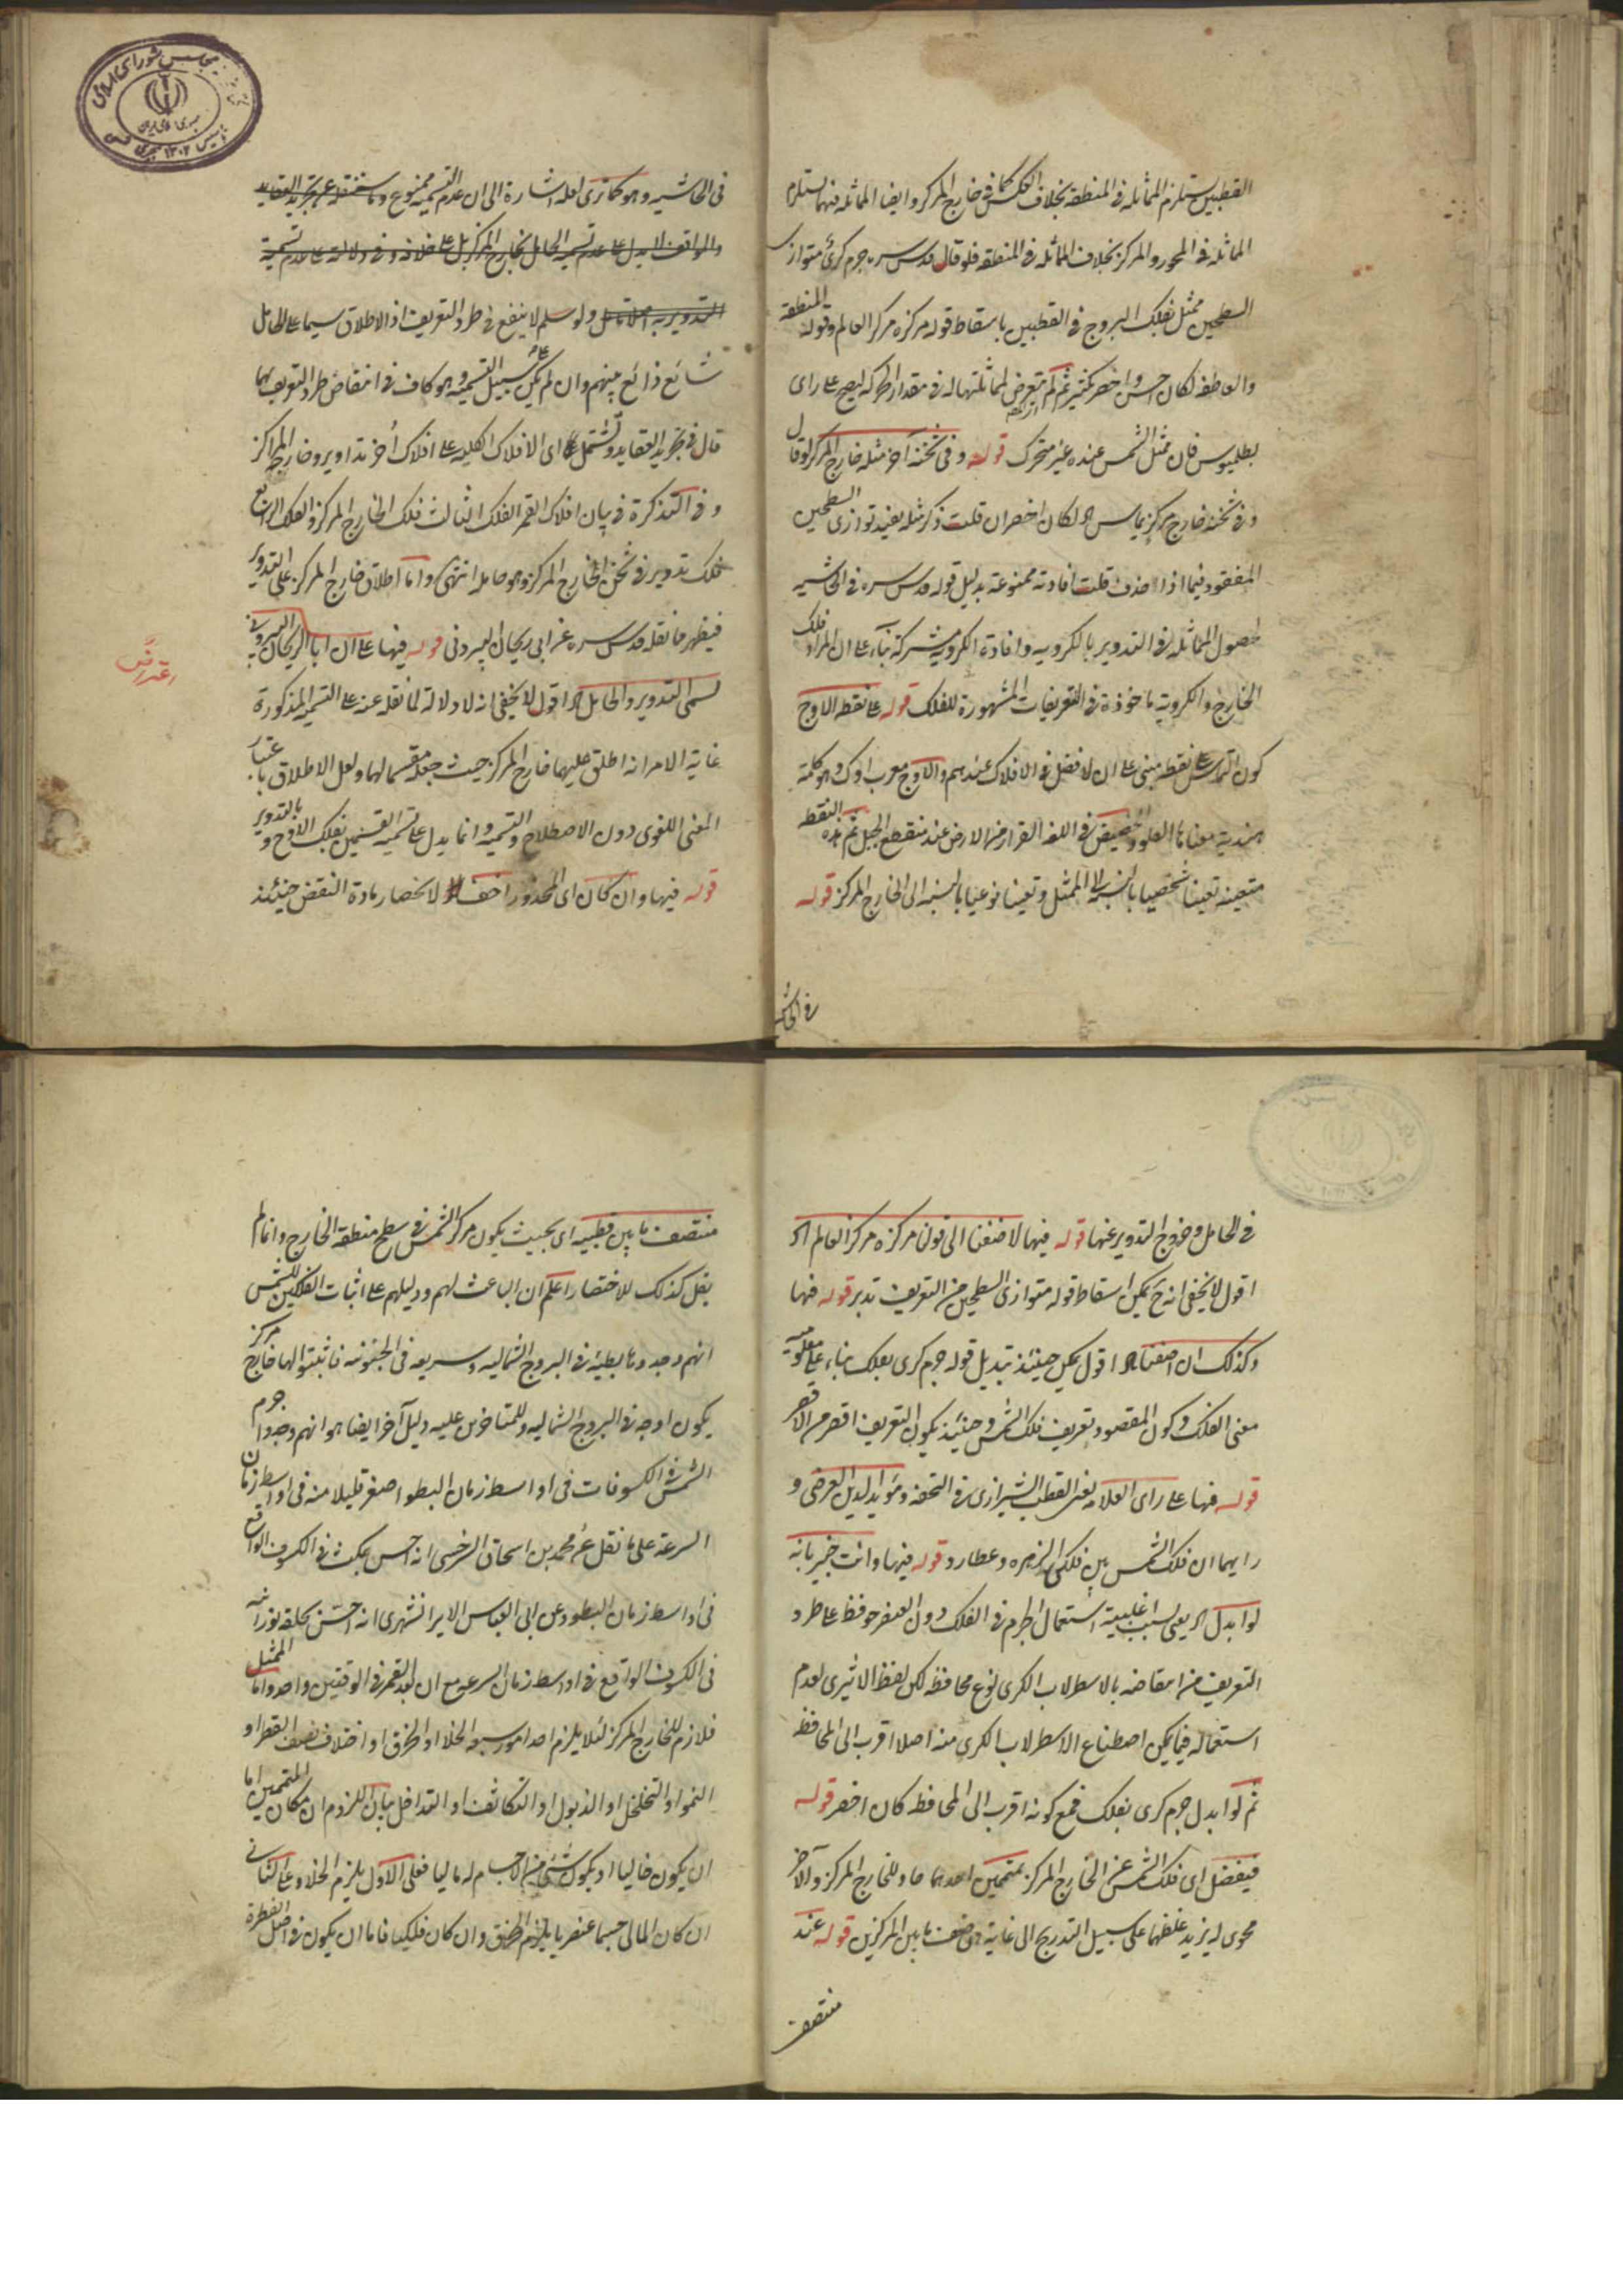 القطبين يستلزم المماثلة فى المنطقة بخلاف العكس كما فى خارج المركز وايضا المماثلة فيهما يستلزم
المماثلة فى المحور والمركز بخلاف المماثلة فى المنطقة فلو قال قدس سره جرم كرى متوازى
السطحين ممثل بفلك البروج فى القطبين باسقاط قوله مركزه مركز العالم وقوله المنطقة
والعاطف لكان احسن واخصر بكثير ثم لم يتعرض لمماثلتهما له فى مقدار الحركة ليصح على راى
بطلميوس فان ممثل الشمس عنده غير متحرك قوله وفى ثخنه آخر مثله خارج المركز لو قال
وفى ثخنه خارج مركز يماس الخ لكان اخصر ان قلت ذكر مثله يفيد توازى السطحين
المفقود فيما اذا حذف قلت افادته ممنوعة بدليل قوله قدس سره فى الحاشية
لحصول المماثلة فى التدوير بالكروية وافادة الكروية مشتركة بناء على ان المراد فلك
الخارج والكروية ماخوذة فى التعريفات المشهورة للفلك قوله على نقطة الاوج
كون التماس على نقطة مبنى على ان لا فضل فى الافلاك عندهم والاوج معرب اوك وهو كلمة
هندية معناها العلو والحضيض فى اللغة القرار من الارض عند منقطع الجبل ثم هذه النقطة
متعينة تعينا شخصيا بالنسبة الى الممثل وتعينا نوعيا بالنسبة الى الخارج المركز قوله
فى الحاشية
فى الحاشية وهو كما ترى لعله اشارة الى ان عدم التسمية ممنوع وما سننقله عن تجريد العقايد
والمواقف لا يدل على عدم تسمية الحامل بخارج المركز بل على خلافه وفى دلالته على عدم تسمية
التدوير به تامل ولو سلم لا ينفع فى طرد التعريف اذ الاطلاق سيما على الحامل
شائع ذائع بينهم وان لم يكن على سبيل التسمية وهو كاف فى انتقاض طرد التعريف بهما
قال فى تجريد العقايد وتشتمل اى الافلاك الكلية على افلاك أخر تداوير وخارجة المراكز
وفى التذكرة فى بيان افلاك القمر الفلك الثالث فلك الخارج المركز والفلك الرابع
فلك تدوير فى ثخن الخارج المركز وهو حامله انتهى واما اطلاق خارج المركز على التدوير
فيظهر مما نقله قدس سره عن ابى ريحان البيرونى قوله فيها على ان ابا الريحان البيرونى
اعتراض
يسمى التدوير والحامل الخ اقول لا يخفى انه لا دلالة لما نقله عنه على التسمية المذكورة
غاية الامر انه اطلق عليهما خارج المركز حيث جعله مقسما لهما ولعل الاطلاق باعتبار
المعنى اللغوى دون الاصطلاح والتسمية وانما يدل على تسمية القسمين بفلك الاوج وبالتدوير
قوله فيها وان كان اى المحذور اخف لانحصار مادة النقض حينئذ
فى الحامل وخروج التدوير عنها قوله فيها لاضفنا الى قولنا مركزه مركز العالم الخ
اقول لا يخفى انه ح يمكن اسقاط قوله متوازى السطحين من التعريف تدبر قوله فيها
وكذلك ان اضفنا الخ اقول يمكن حينئذ تبديل قوله جرم كرى بفلك بناء على معلومية
معنى الفلك وكون المقصود تعريف فلك الشمس وحينئذ يكون التعريف اقصر من الاقصر
قوله فيها على راى العلامة يعنى القطب الشيرازى فى التحفة ومؤيد لدين العرضى و
رايهما ان فلك الشمس بين فلكى الزهرة وعطارد قوله فيها وانت خبير بانه
لو ابدل الخ يعنى بسبب اغلبية استعمال الجرم فى الفلك دون العنصر حوفظ على طرد
التعريف من انتقاضه بالاسطرلاب الكرى نوع محافظة لكن لفظ الاثيرى لعدم
استعماله فيما يمكن اصطناع الاسطرلاب الكرى منه اصلا اقرب الى المحافظة
ثم لو ابدل جرم كرى بفلك فمع كونه اقرب الى المحافظة كان اخصر قوله
فيفضل اى فلك الشمس عن الخارج المركز بمتممين احدهما حاو للخارج المركز والآخر
محوى له يزيد غلظهما على سبيل التدريج الى غاية هى ضعف ما بين المركزين قوله عند
منتصف
منتصف ما بين قطبيه اى بحيث يكون مركز الشمس فى سطح منطقة الخارج وانما لم
يقل كذلك للاختصار اعلم ان الباعث لهم ودليلهم على اثبات الفلكين للشمس
انهم وجدوها بطيئة فى البروج الشمالية وسريعة فى الجنوبية فاثبتوا لها خارج مركز
يكون اوجه فى البروج الشمالية وللمتاخرين عليه دليل آخر ايضا هو انهم وجدوا جرم
الشمس فى الكسوفات فى اواسط زمان البطو اصغر قليلا منه فى اواسط زمان
السرعة على ما نقل عن محمد بن اسحاق السرخسى انه احس بمكث فى الكسوف الواقع
فى اواسط زمان البطو وعن ابى العباس الايرانشهرى انه احس بحلقة نورانية
فى الكسوف الواقع فى اواسط زمان السرعة مع ان بعد القمر فى الوقتين واحد واما الممثل
فلازم للخارج المركز لئلا يلزم احد امور سبعة الخلا او الخرق او اختلاف نصف القطر او
النمو او التخلخل او الذبول او التكاثف او التداخل بيان اللزوم ان مكان المتممين اما
ان يكون خاليا او يكون شئ من الاجسام له ماليا فعلى الاول يلزم الخلا وعلى الثانى
ان كان المالى جسما عنصريا يلزم الخرق وان كان فلكيا فاما ان يكون فى اصل الفطرة